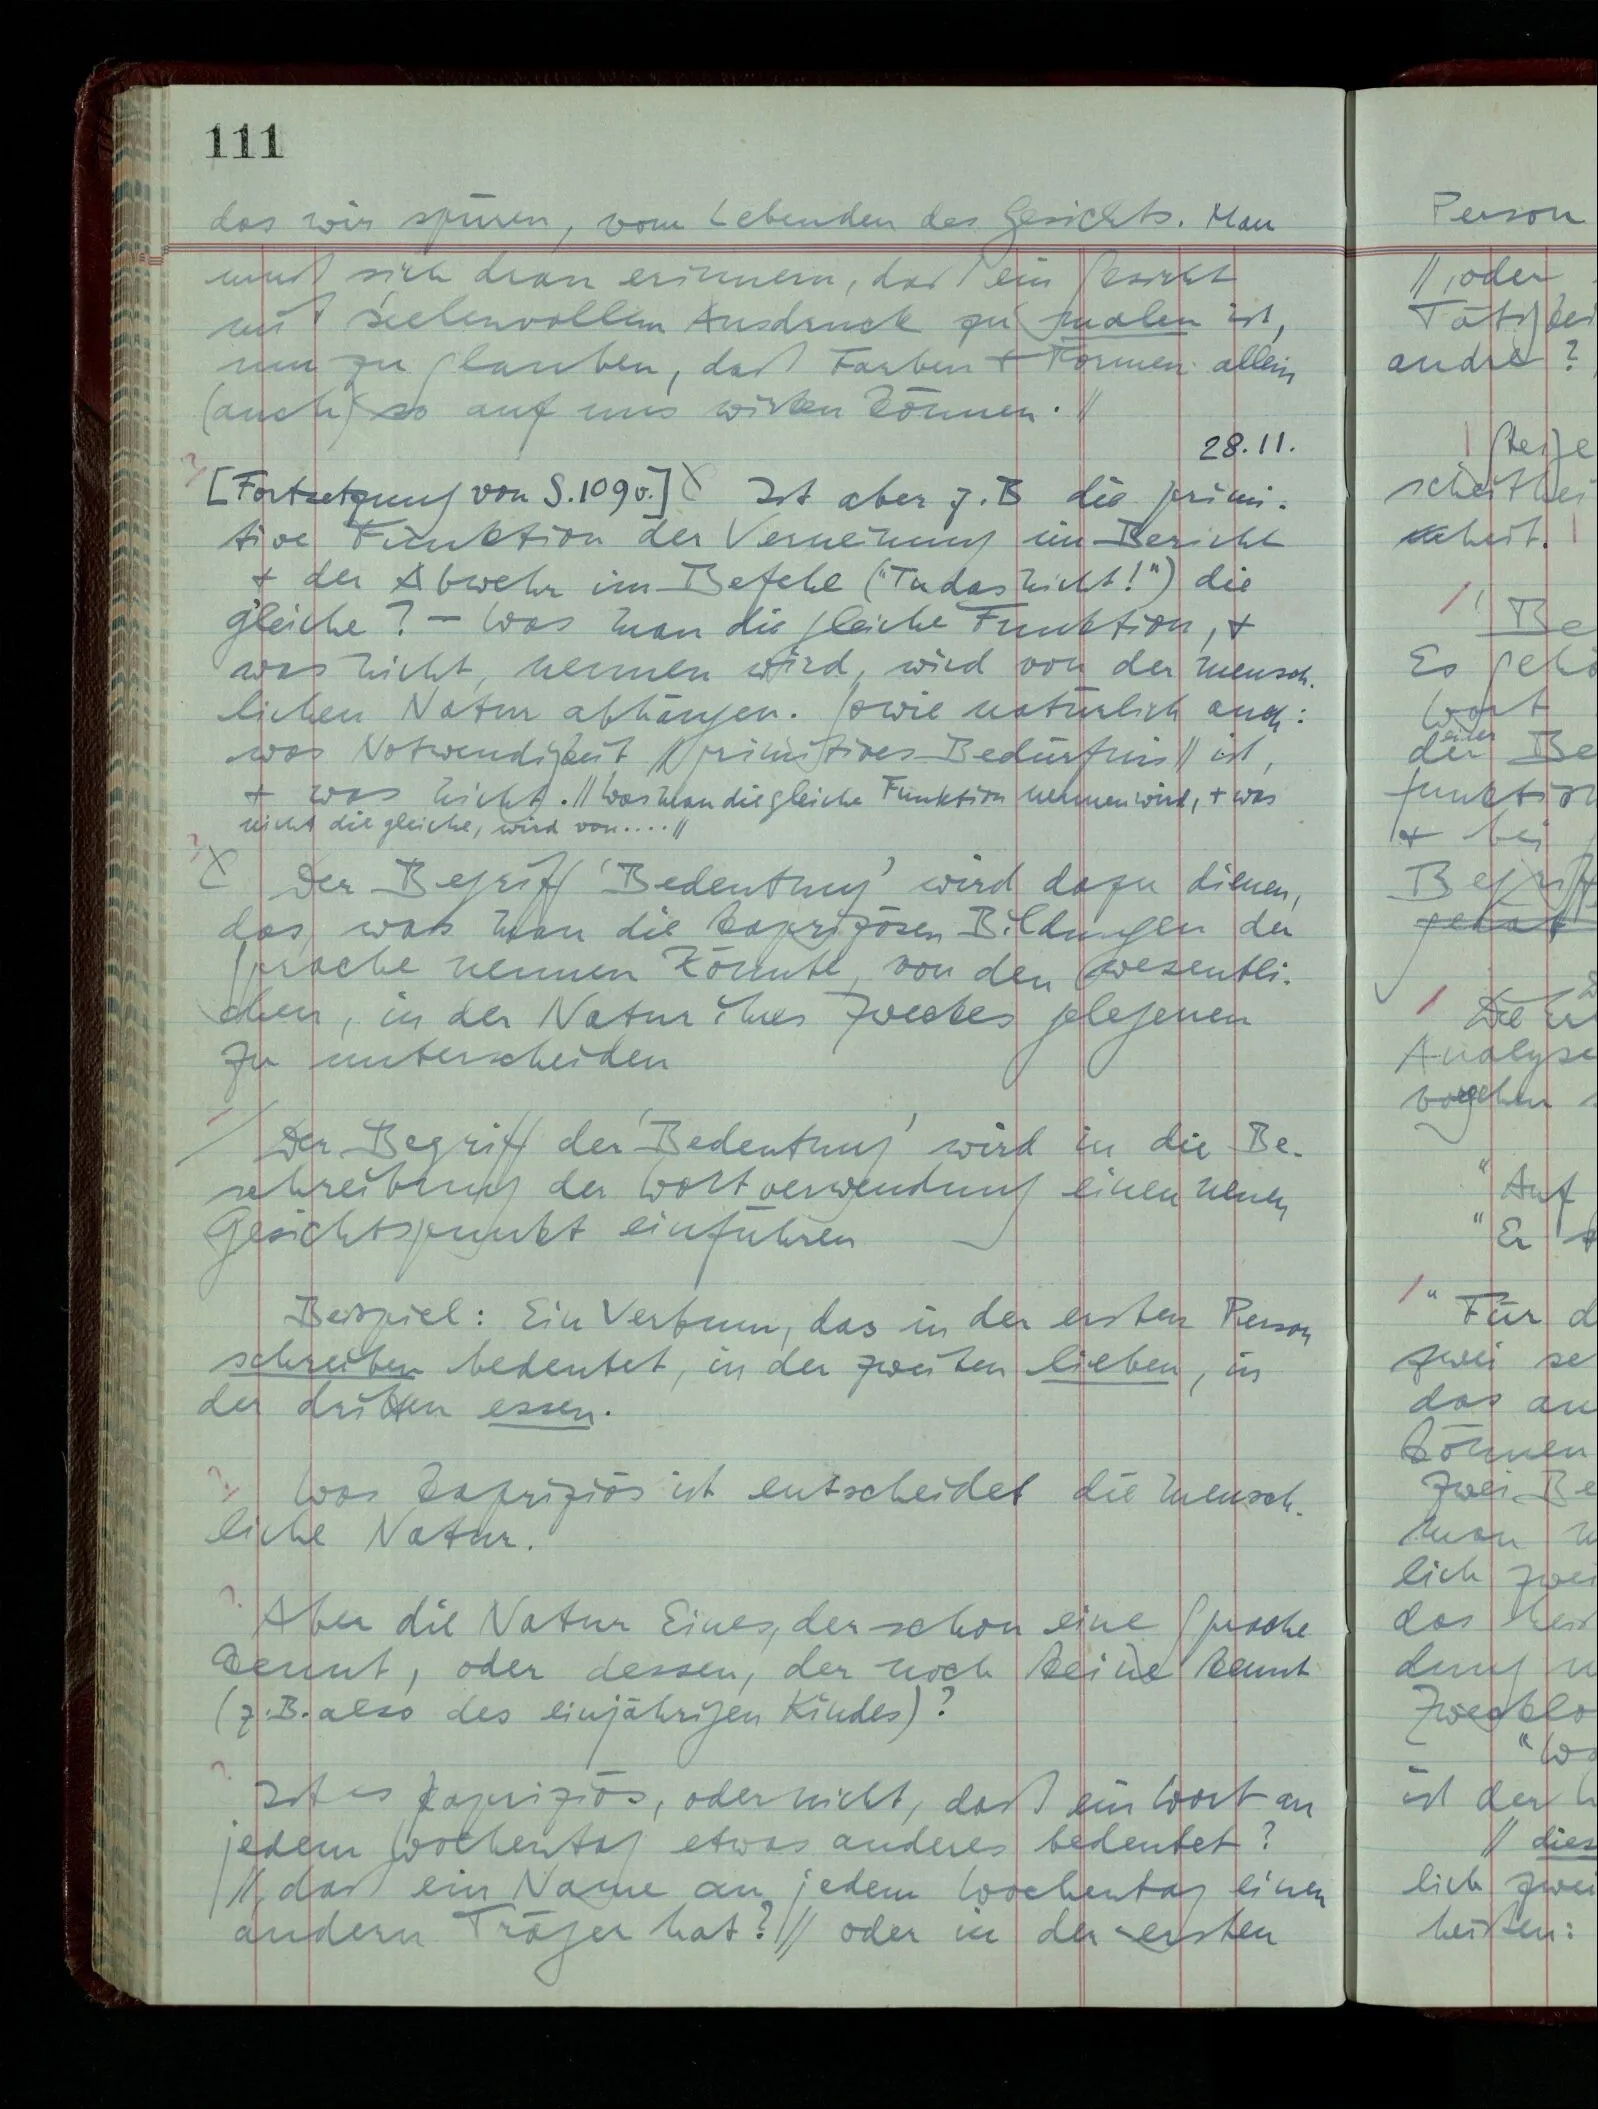 111
das wir spüren, vom Lebenden des Gesichts. Man
muß sich dran erinnern, daß ein Gesicht
mit seelenvollem Ausdruck zu malen ist,
um zu glauben, daß Farben + Formen allein
(auch) so auf uns wirken können. //
28.11.
[Fortsetzung von S.109v.] Ist aber z.B die primi-
tive Funktion der Verneinung im Bericht
+ der Abwehr im Befehl ("Tu das nicht!") die
gleiche? – Was man die gleiche Funktion, +
was nicht, nennen wird, wird von der mensch-
lichen Natur abhängen. Sowie natürlich auch:
was Notwendigkeit, // primitives Bedürfnis // ist,
+ was nicht. // Was man die gleiche Funktion nennen wird, + was
nicht die gleiche, wird von .... //
Der Begriff 'Bedeutung' wird dazu dienen,
das, was man die kapriziösen Bildungen der
Sprache nennen könnte, von den wesentli-
chen, in der Natur ihres Zweckes gelegenen
zu unterscheiden
Der Begriff der 'Bedeutung' wird in die Be-
schreibung der Wortverwendung einen neuen
Gesichtspunkt einführen
Beispiel: Ein Verbum, das in der ersten Person
schreiben bedeutet, in der zweiten lieben, in
der dritten essen.
Was kapriziös ist entscheidet die mensch-
liche Natur.
Aber die Natur Eines, der schon eine Sprache
kennt, oder dessen, der noch keine kennt
(z.B. also des einjährigen Kindes)?
Ist es kapriziös, oder nicht, daß ein Wort an
jedem Wochentag etwas anderes bedeutet?
//, daß ein Name an jedem Wochentag einen
andern Träger hat? // oder in der ersten
Person
//, oder
andre?
scheitbei
heit.
Be
Wort
einer
der Be
funktion
+ bei
Begriff
Die
Analyse
"Auf
"Er
"Für d
zwei
das
können
zwei Be
man
lich zwei
das
ist der
// dies
lich zwei